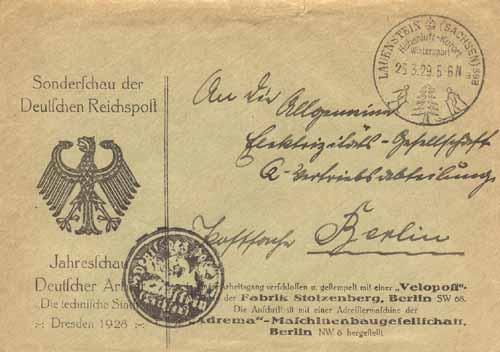 Sonderschau der
Deutschen Reichspost
Jahresschau
Deutscher
"Die technische
Dresden 1928
LAUENSTEIN (SACHSEN)
Höhenluft-Kurort
Wintersport
25.3.29. 5-6 N
An die Allgemeine
Elektrizitäts-Gesellschaft
Vertriebsabteilung
Berlin
verschlossen u. gestempelt mit einer „Velopost"-
der Fabrik Stolzenberg, Berlin SW 68.
Die Anschrift ist mit einer Adressiermaschine der
„Adrema"-Maschinenbaugesellschaft,
Berlin NW 6 hergestellt.